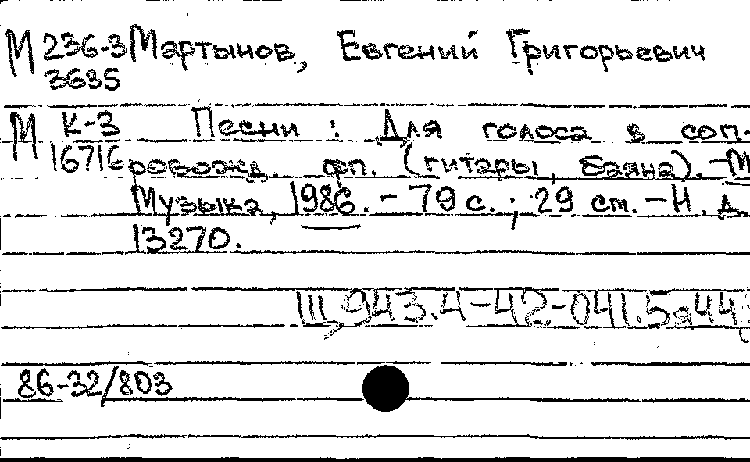 М 236-3 Мартынов, Евгений Григорьевич
3635
М К-3 Песни : Для голоса в соп-
16716 ровожд. фп. (гитары, баяна). - М
Музыка, 1986. - 79 с. ; 29 см. - Н. д.
13270.
Щ 943.4-42-041.5я44
86-32/803